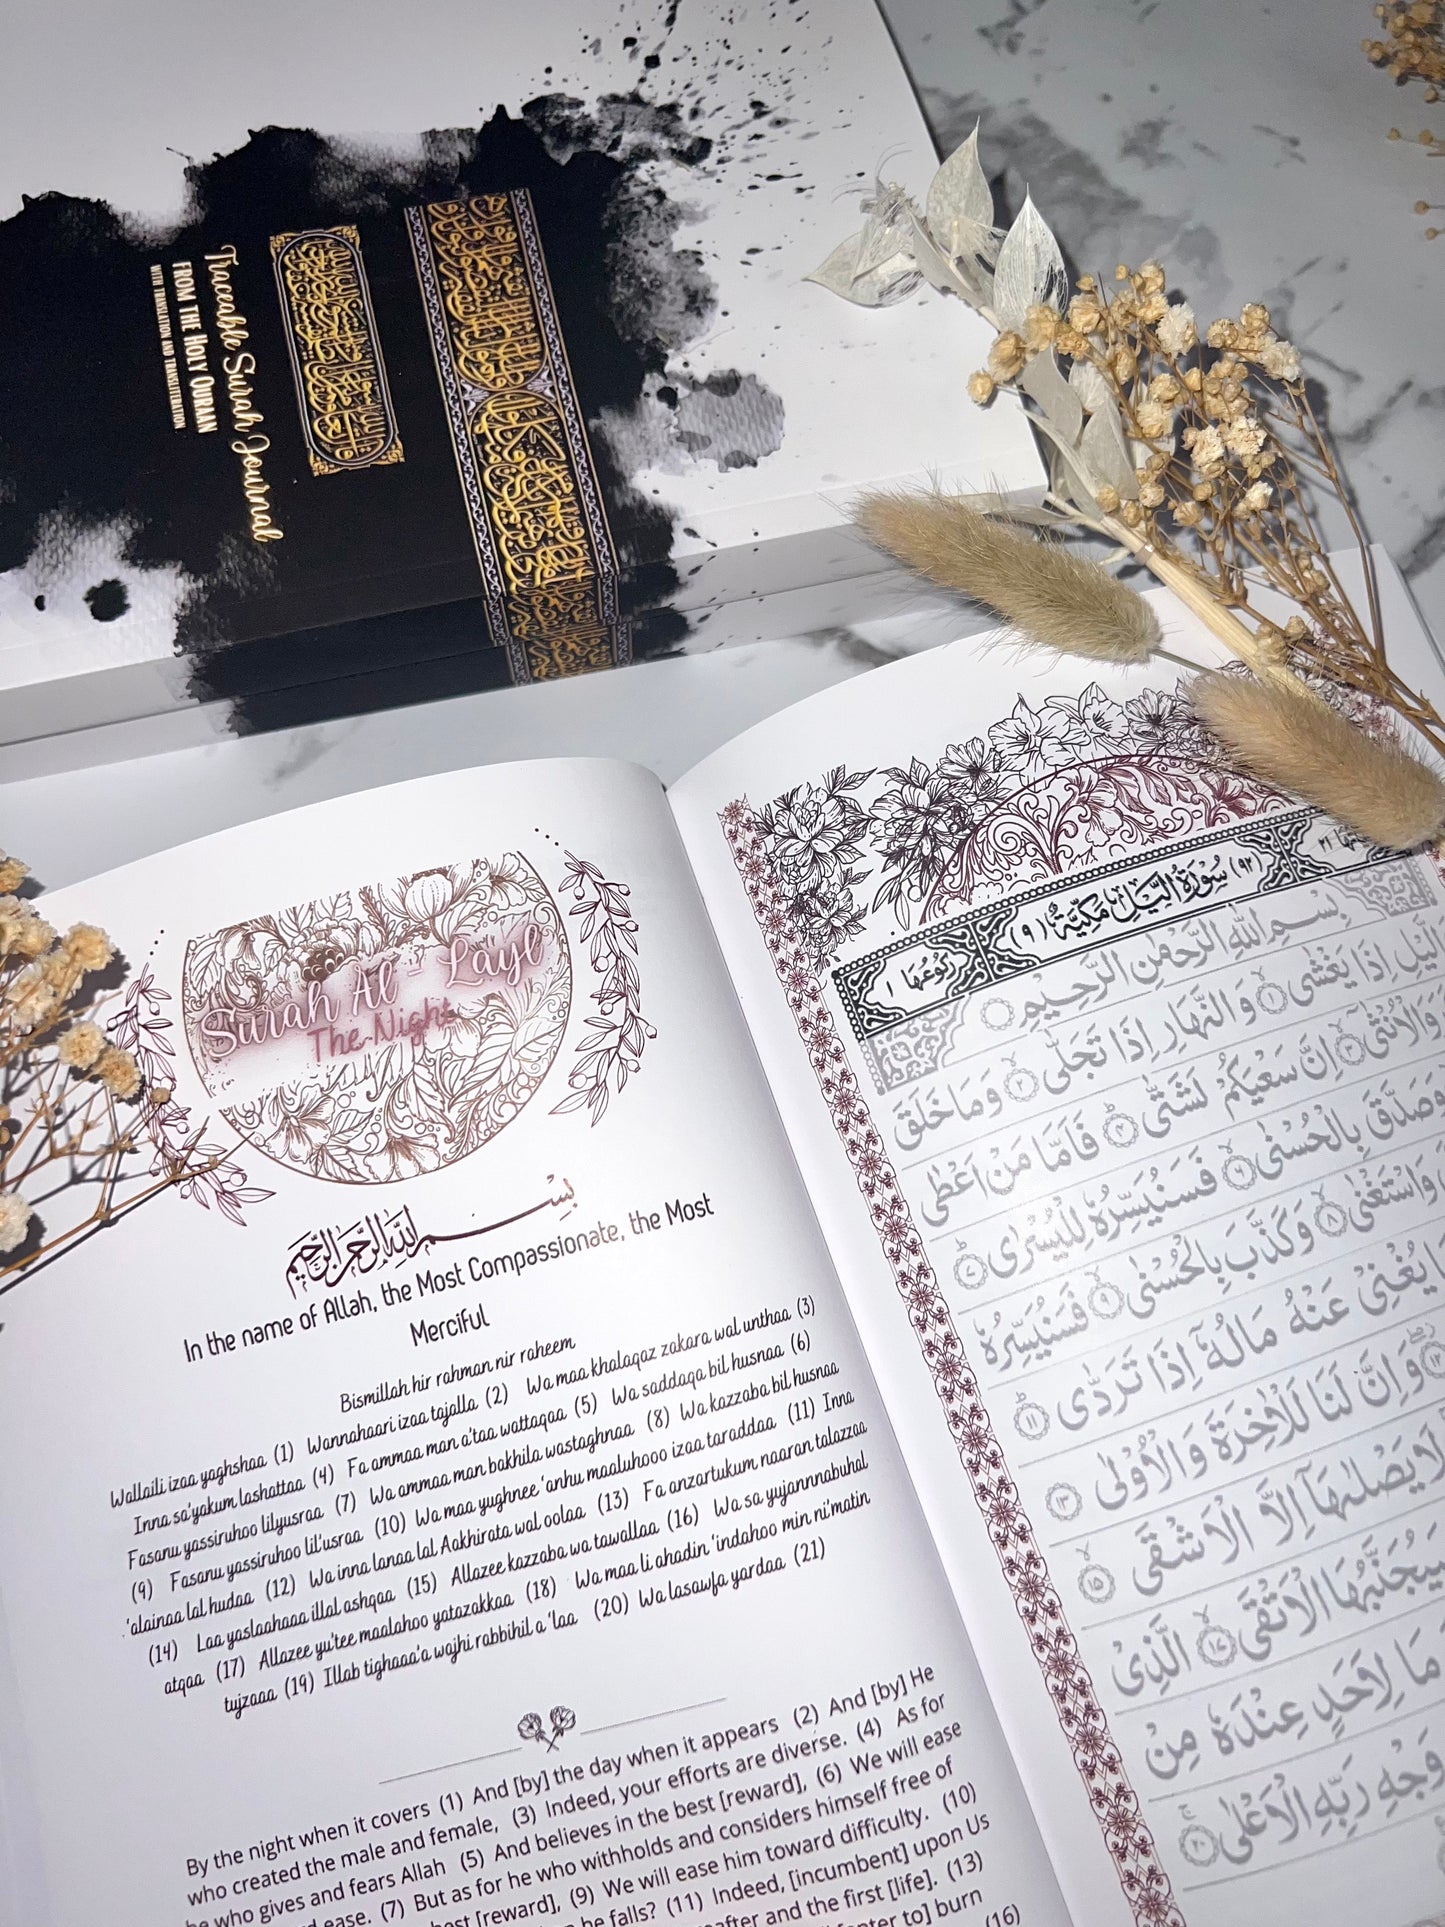 Traceable Surah Journal
FROM THE HOLY QURAAN
WITH TRANSLATION AND TRANSLITERATION
Surah Al - Layl
The Night
بِسْمِ اللهِ الرَّحْمٰنِ الرَّحِيْمِ
In the name of Allah, the Most Compassionate, the Most
Merciful
Bismillah hir rahman nir raheem
Wallaili izaa yaghshaa (1) Wannahaari izaa tajalla (2) Wa maa khalaqaz zakara wal unthaa (3)
Inna sa'yakum lashattaa (4) Fa ammaa man a'taa wattaqaa (5) Wa saddaqa bil husnaa (6)
Fasanu yassiruhoo lilyusraa (7) Wa ammaa man bakhila wastaghnaa (8) Wa kazzaba bil husnaa
(9) Fasanu yassiruhoo lil'usraa (10) Wa maa yughnee 'anhu maaluhooo izaa taraddaa (11) Inna
'alainaa lal hudaa (12) Wa inna lanaa lal Aakhirata wal oolaa (13) Fa anzartukum naaran talazzaa
(14) Laa yaslaahaaa illal ashqaa (15) Allazee kazzaba wa tawallaa (16) Wa sa yujannnabuhal
atqaa (17) Allazee yu'tee maalahoo yatazakkaa (18) Wa maa li ahadin 'indahoo min ni'matin
tujzaaa (19) Illab tighaaa'a wajhi rabbihil a 'laa (20) Wa lasawfa yardaa (21)
By the night when it covers (1) And [by] the day when it appears (2) And [by] He
who created the male and female, (3) Indeed, your efforts are diverse. (4) As for
he who gives and fears Allah (5) And believes in the best [reward], (6) We will ease
ease. (7) But as for he who withholds and considers himself free of
[reward], (9) We will ease him toward difficulty. (10)
he falls? (11) Indeed, [incumbent] upon Us
and the first [life]. (13)
to] burn
(16)
رُكُوْعُهَا ١ (٩٢) سُوْرَةُ الَّيْلِ مَكِّيَّةٌ (٩) ٢١
بِسْمِ اللهِ الرَّحْمٰنِ الرَّحِيْمِ
الَّيْلِ اِذَا يَغْشٰى ١ وَالنَّهَارِ اِذَا تَجَلّٰى ٢ وَمَا خَلَقَ
وَالْاُنْثٰى ٣ اِنَّ سَعْيَكُمْ لَشَتّٰى ٤ فَاَمَّا مَنْ اَعْطٰى
وَصَدَّقَ بِالْحُسْنٰى ٦ فَسَنُيَسِّرُهٗ لِلْيُسْرٰى ٧
وَاسْتَغْنٰى ٨ وَكَذَّبَ بِالْحُسْنٰى ٩ فَسَنُيَسِّرُهٗ
يُغْنِيْ عَنْهُ مَالُهٗٓ اِذَا تَرَدّٰى ١١
١٢ وَاِنَّ لَنَا لَلْاٰخِرَةَ وَالْاُوْلٰى ١٣
لَا يَصْلٰىهَآ اِلَّا الْاَشْقَى ١٥
سَيُجَنَّبُهَا الْاَتْقَى ١٧ الَّذِيْ
مَا لِاَحَدٍ عِنْدَهٗ مِنْ
وَجْهِ رَبِّهِ الْاَعْلٰى ٢٠